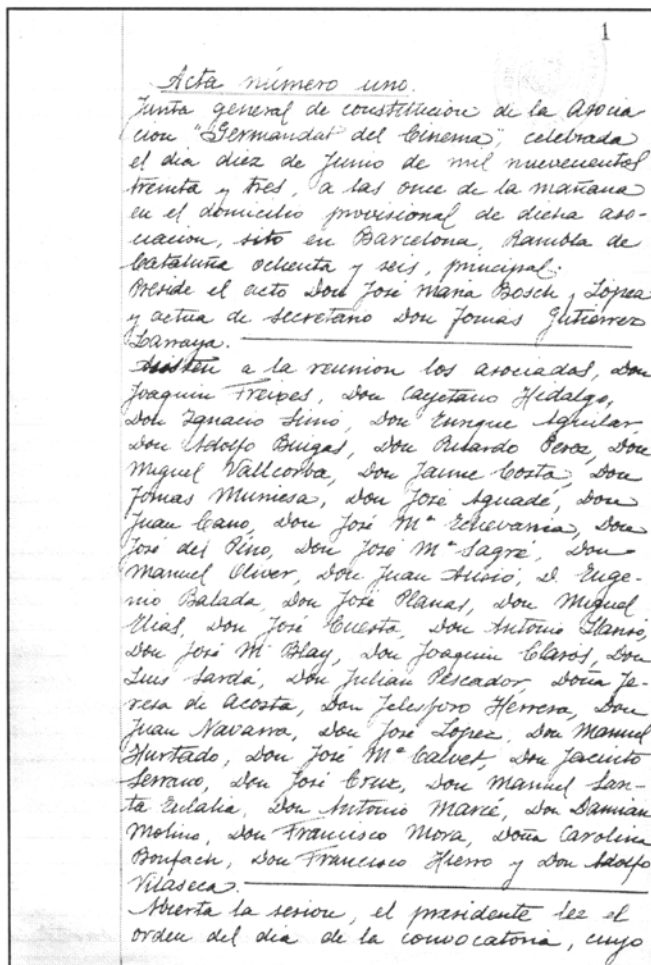 1
Acta número uno.
Junta general de constitucion de la Asocia-
cion "Germandat del Cinema", celebrada
el dia diez de Junio de mil nuevecientos
treinta y tres, a las once de la mañana
en el domicilio provisional de dicha aso-
ciacion, sito en Barcelona, Rambla de
Cataluña ochenta y seis, principal.
Preside el acto Don José Maria Bosch y López
y actua de secretario Don Tomás Gutierrez
Larraya.
Asisten a la reunion los asociados, Don
Joaquin Freixes, Don Cayetano Hidalgo,
Don Ignacio Simó, Don Enrique Aguilar,
Don Adolfo Buigas, Don Ricardo Perez, Don
Miguel Vallcorba, Don Jaime Costa, Don
Tomas Muniesa, Don José Aguadé, Don
Juan Cano, Don José Mª Echevarria, Don
José del Pino, Don José Mª Sagré, Don
Manuel Oliver, Don Juan Ausió, D. Euge-
nio Balada, Don José Planas, Don Miguel
Elias, Don José Cuesta, Don Antonio Llansó,
Don José Mª Blay, Don Joaquin Clarós, Don
Luis Sardá, Don Julian Pescador, Doña Te-
resa de Acosta, Don Telesforo Herrera, Don
Juan Navarra, Don José López, Don Manuel
Hurtado, Don José Mª Calvet, Don Jacinto
Serrano, Don José Cruz, Don Manuel San-
ta Eulalia, Don Antonio Marcé, Don Damian
Molino, Don Francisco Mora, Doña Carolina
Bonfach, Don Francisco Hierro y Don Adolfo
Vilaseca.
Abierta la sesion, el presidente lee el
orden del dia de la convocatoria, cuyo